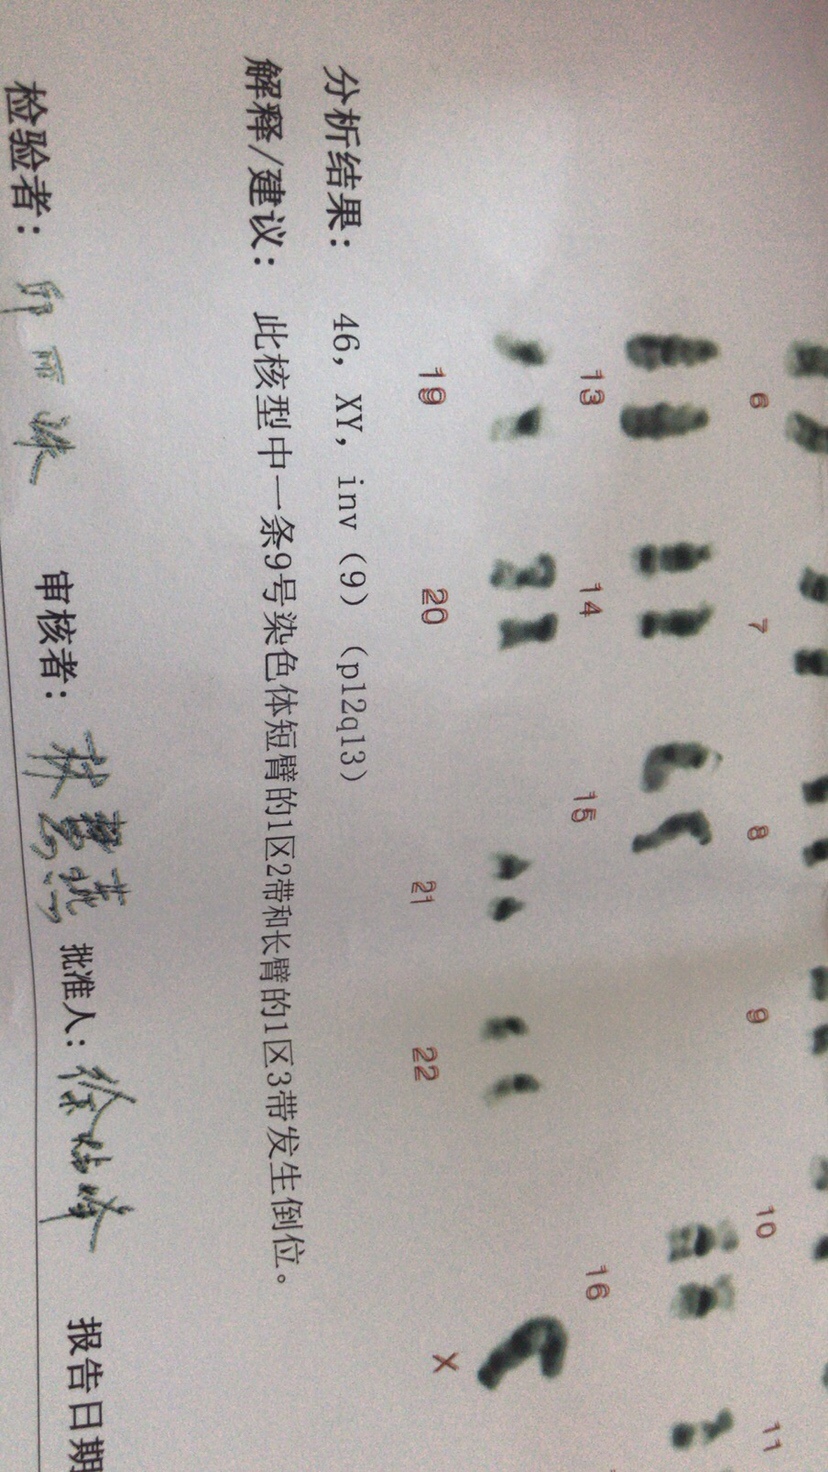 6 7 8 9 10 11
13 14 15 16
19 20 21 22 X
分析结果： 46, XY, inv（9）（p12q13）
解释/建议： 此核型中一条9号染色体短臂的1区2带和长臂的1区3带发生倒位。
检验者： 审核者： 批准人： 报告日期